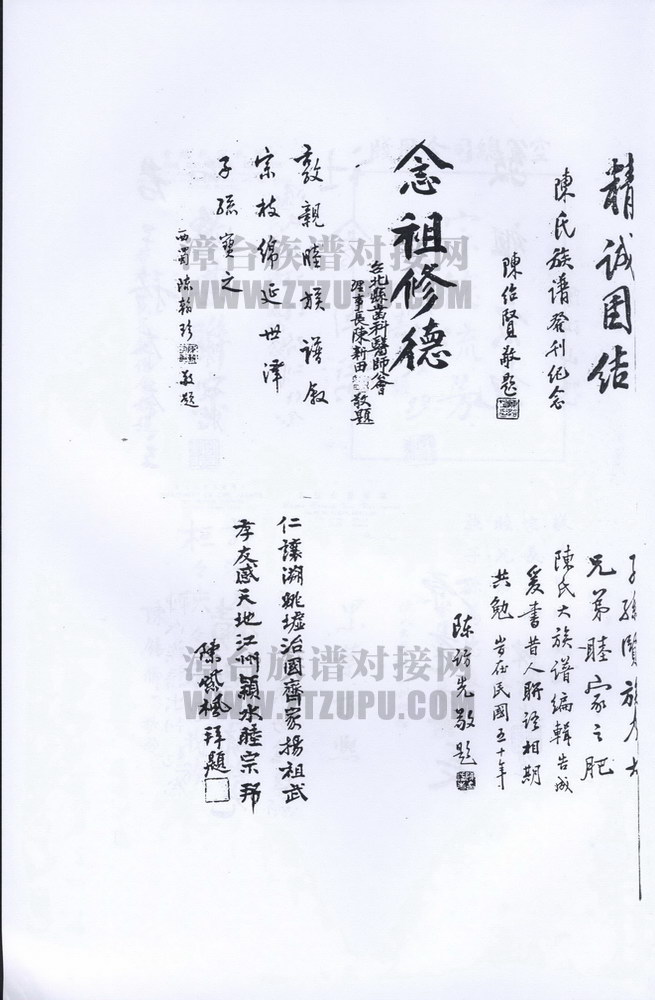 精誠団结
陳氏族谱發刊纪念
陳俭賢敬题
念祖修德
台北縣齒科醫師公會
理事長陳新田敬題
敦親睦族譜叙
宗枝綿延世澤
子孫寶之
西蜀陈翰珍敬題
子孫賢族乃大
兄弟睦家之肥
陳氏大族譜編輯告成
爰書昔人聯语相期
共勉 岁在民國五十年
陈访先敬題
仁讓溯姚墟治國齊家揚祖武
孝友感天地江州穎水睦宗邦
陳紫楓拜題
漳台族谱对接网
WWW.ZTZUPU.COM
漳台族谱对接网
WWW.ZTZUPU.COM